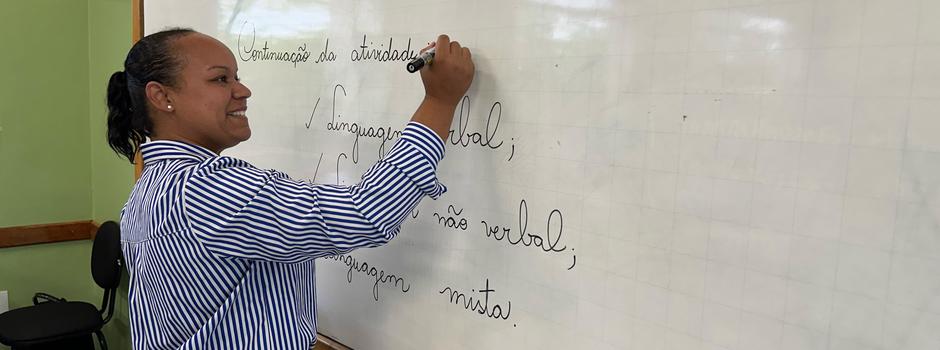 Continuação da atividade
✓ Linguagem verbal;
não verbal;
linguagem mista.